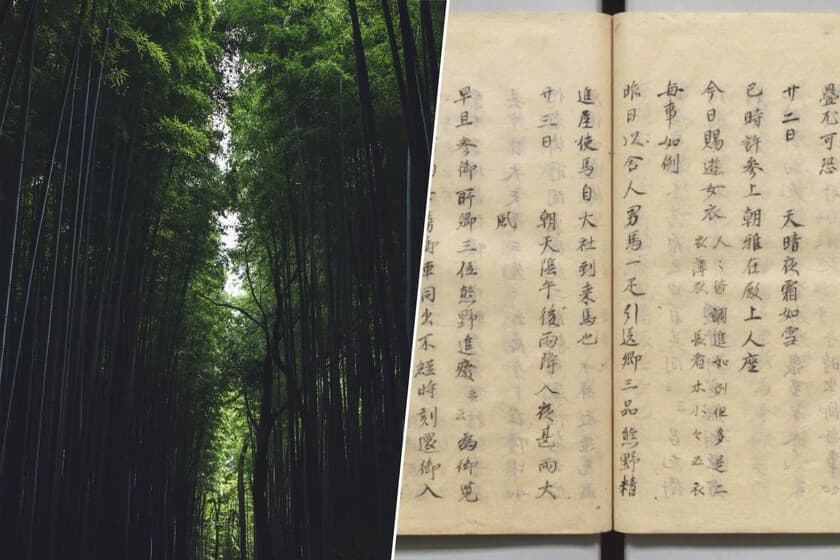 尤可恐
廿二日　天晴夜霜如雪
巳時許参上朝雅在殿上人座
今日賜遊女衣
人々皆調進如例但多是二
衣薄衣　長者木小々五衣
毎事如例
昨日以舎人男馬一疋引送卿三品熊野精
進屋使馬自大社到来馬也
廿三日　朝天陰午後雨降入夜甚雨大
風
早旦参御所卿三位熊野進發云々為御覧
御車同出不經時刻還御入